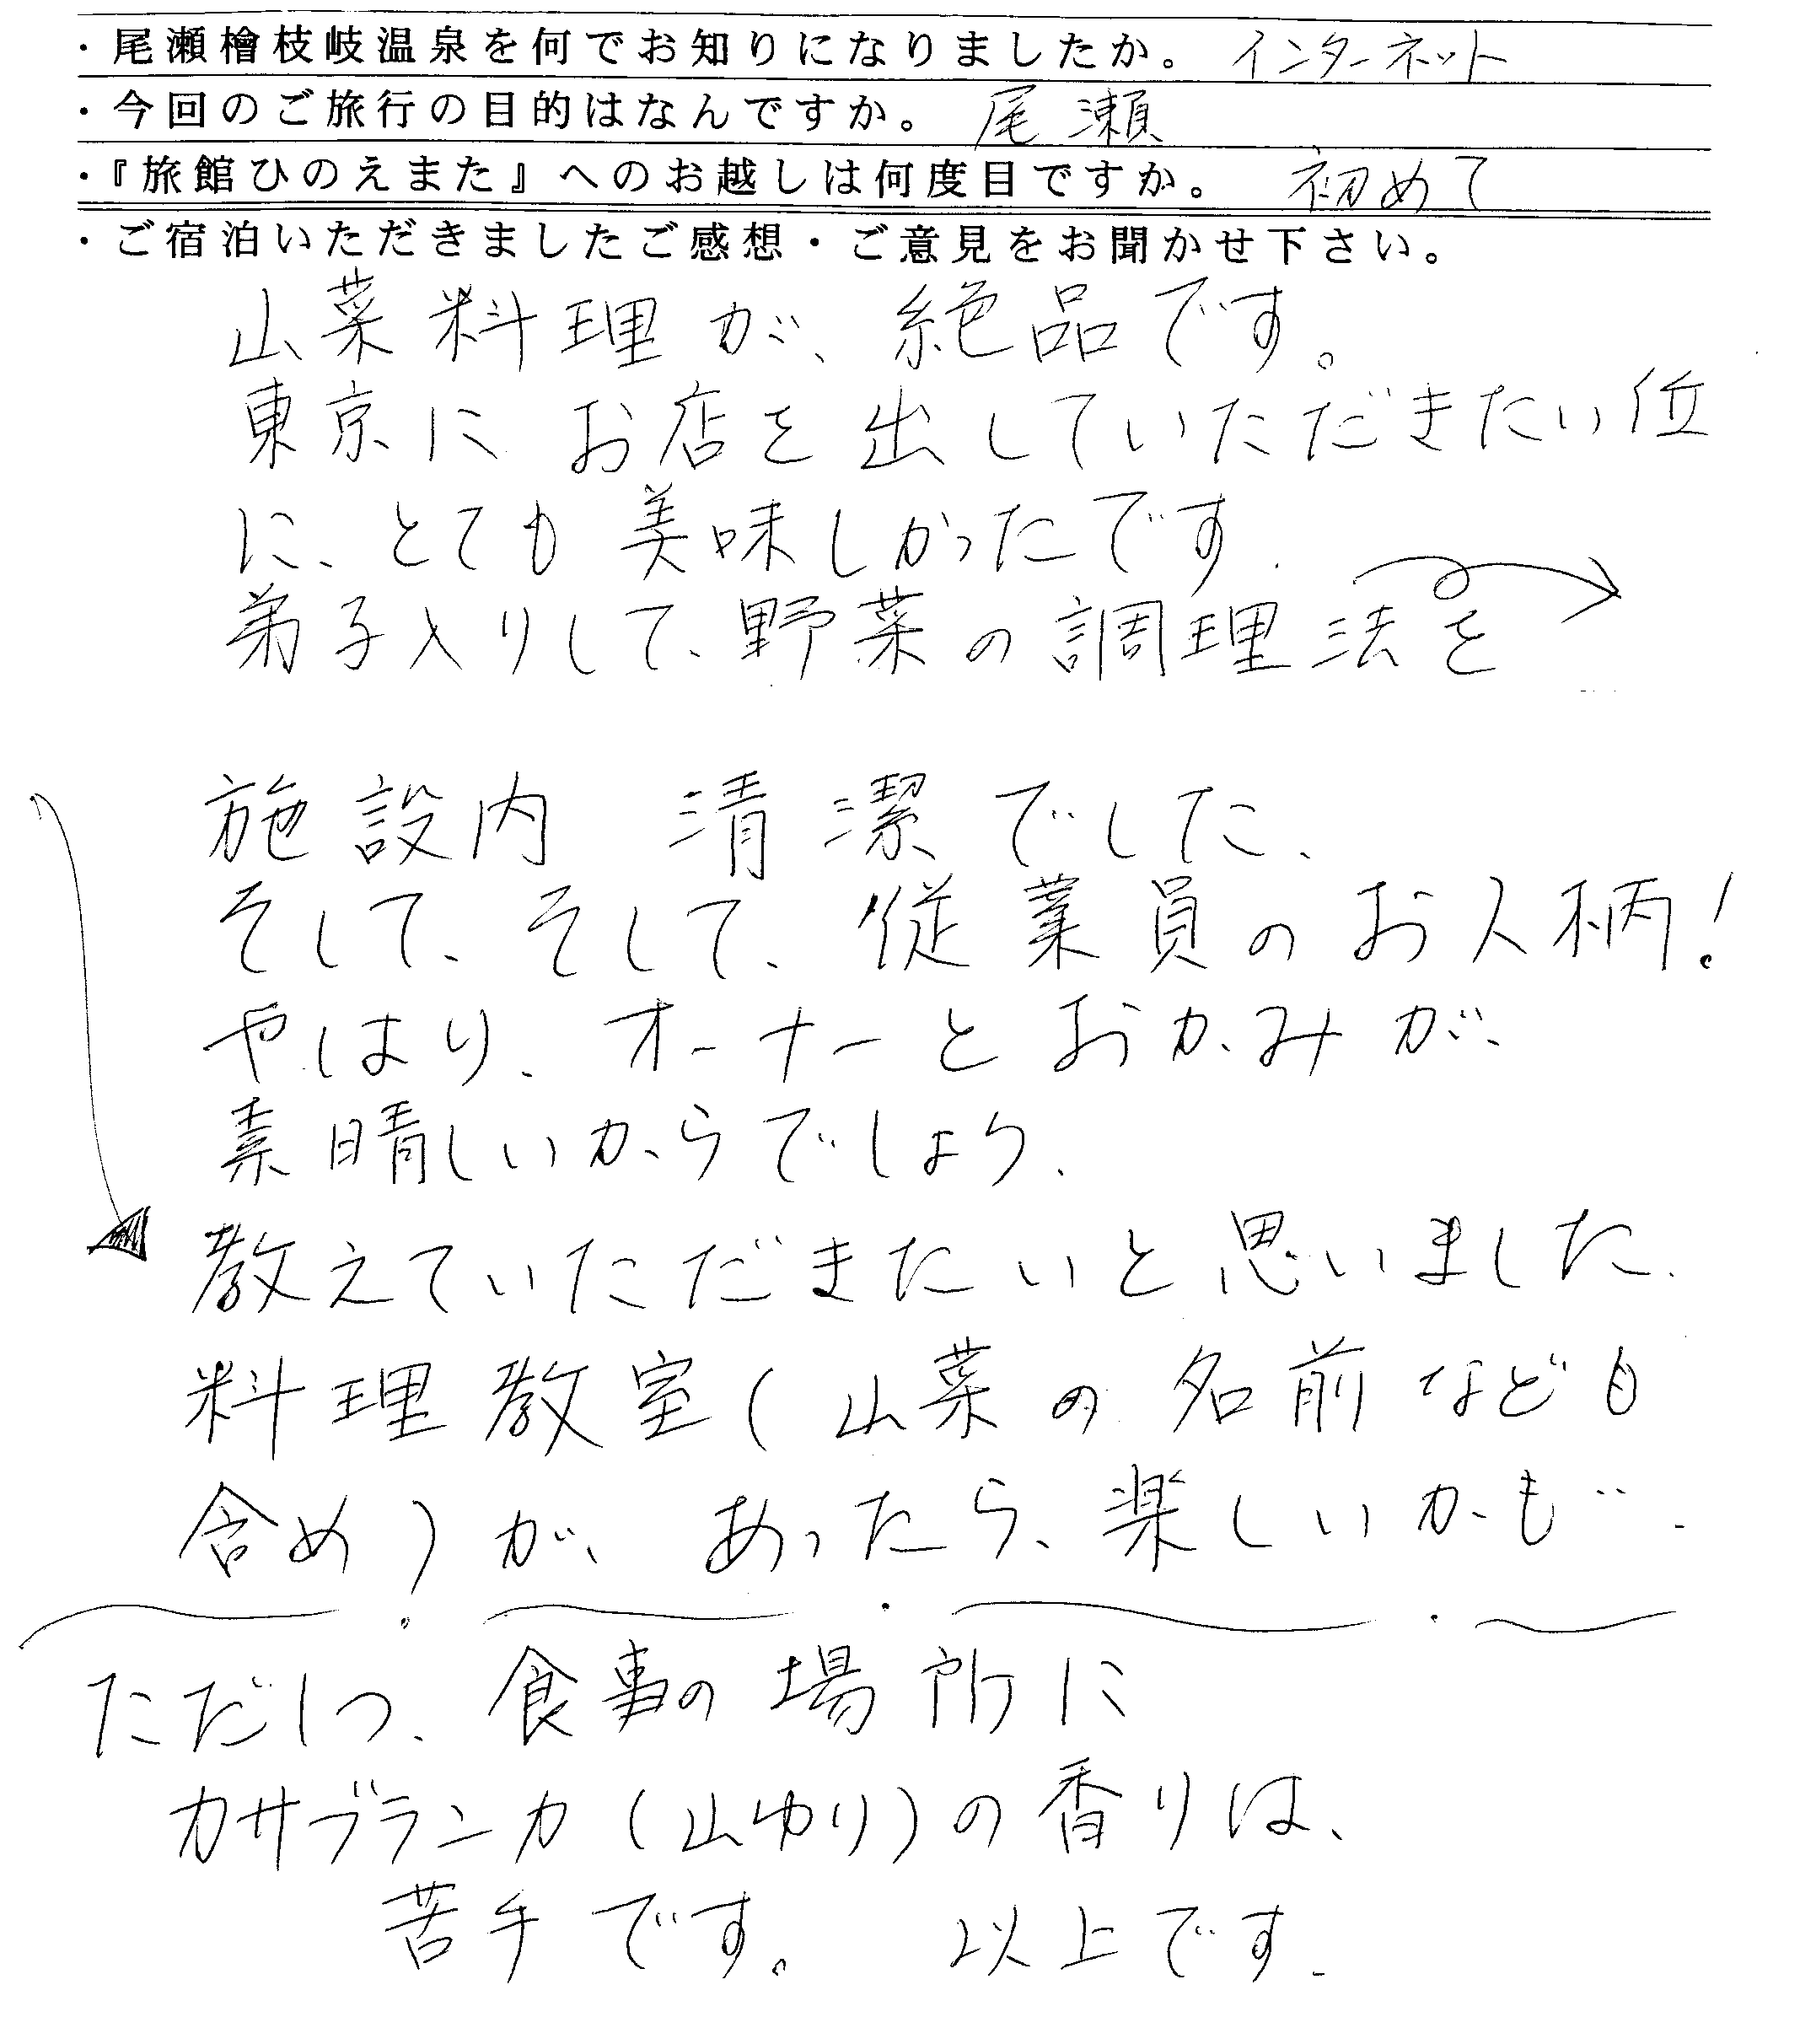 ・尾瀬檜枝岐温泉を何でお知りになりましたか。 インターネット
・今回のご旅行の目的はなんですか。 尾瀬
・『旅館ひのえまた』へのお越しは何度目ですか。 初めて
・ご宿泊いただきましたご感想・ご意見をお聞かせ下さい。
山菜料理が、絶品です。
東京にお店を出していただきたい位
に、とても美味しかったです.
弟子入りして、野菜の調理法を
施設内 清潔でした、
そして、そして、従業員のお人柄!
やはり、オーナーとおかみが、
素晴しいからでしょう.
教えていただきたいと思いました.
料理教室(山菜の名前なども
含め)が、あったら、楽しいかも…
ただ1つ、食事の場所に
カサブランカ(山ゆり)の香りは、
苦手です。 以上です.